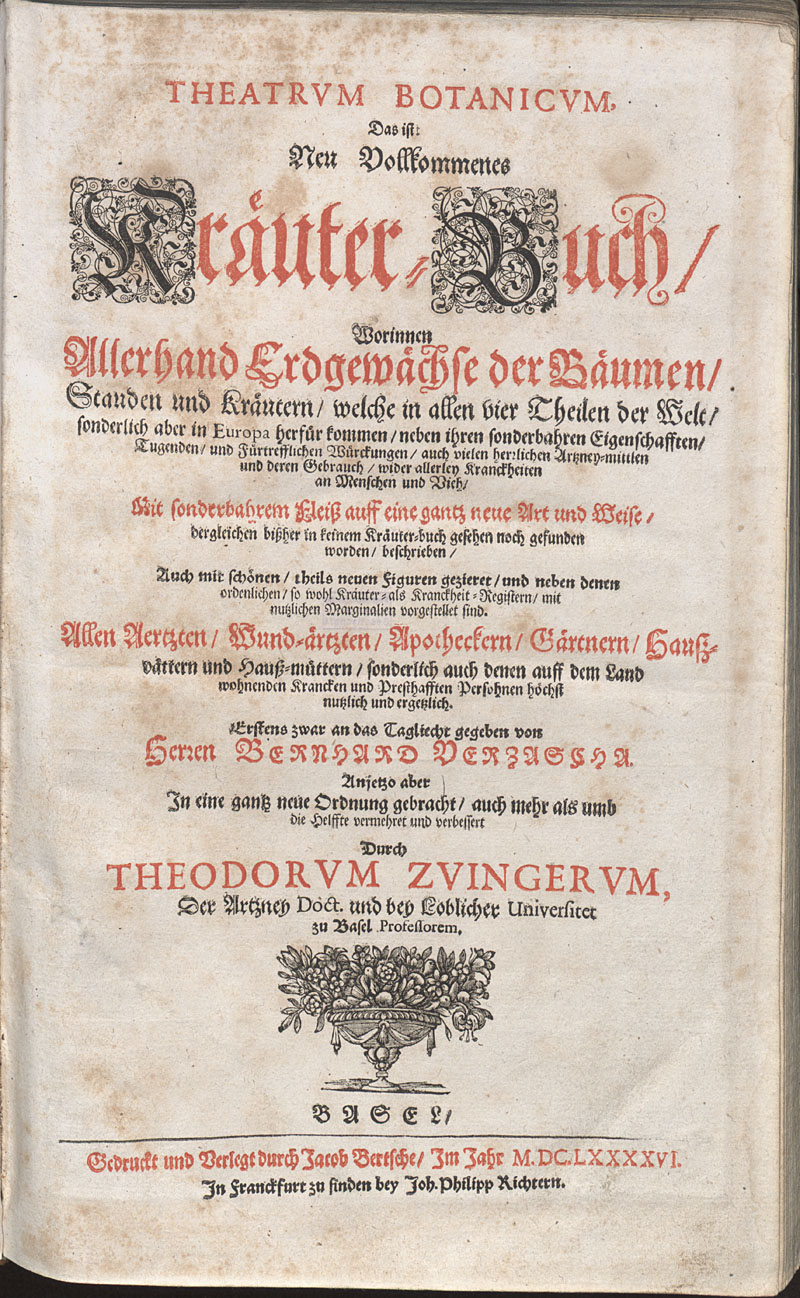 THEATRVM BOTANICVM,
Das ist:
Neu Vollkommenes
Kräuter-Buch/
Worinnen
Allerhand Erdgewächse der Bäumen/
Stauden und Kräutern/ welche in allen vier Theilen der Welt/
sonderlich aber in Europa herfür kommen/ neben ihren sonderbahren Eigenschafften/
Tugenden/ und Fürtrefflichen Würckungen/ auch vielen herrlichen Artzney-mittlen
und deren Gebrauch/ wider allerley Kranckheiten
an Menschen und Vieh/
Mit sonderbahrem Fleiß auff eine gantz neue Art und Weise/
dergleichen bißher in keinem Kräuter-buch gesehen noch gefunden
worden/ beschrieben/
Auch mit schönen/ theils neuen Figuren gezieret/ und neben denen
ordenlichen/ so wohl Kräuter- als Kranckheit-Registern/ mit
nutzlichen Marginalien vorgestellet sind.
Allen Aertzten/ Wund-ärtzten/ Apotheckern/ Gärtnern/ Hauß-
vättern und Hauß-müttern/ sonderlich auch denen auff dem Land
wohnenden Krancken und Presthafften Persohnen höchst
nutzlich und ergetzlich.
Erstens zwar an das Tagliecht gegeben von
Herren BERNHARD VERZASCHA.
Anjetzo aber
In eine gantz neue Ordnung gebracht/ auch mehr als umb
die Helffte vermehret und verbessert
Durch
THEODORVM ZVINGERVM,
Der Artzney Doct. und bey Loblicher Universitet
zu Basel Professorem.
BASEL/
Gedruckt und Verlegt durch Jacob Bertsche/ Im Jahr M.DC.LXXXXVI.
In Franckfurt zu finden bey Joh. Philipp Richtern.